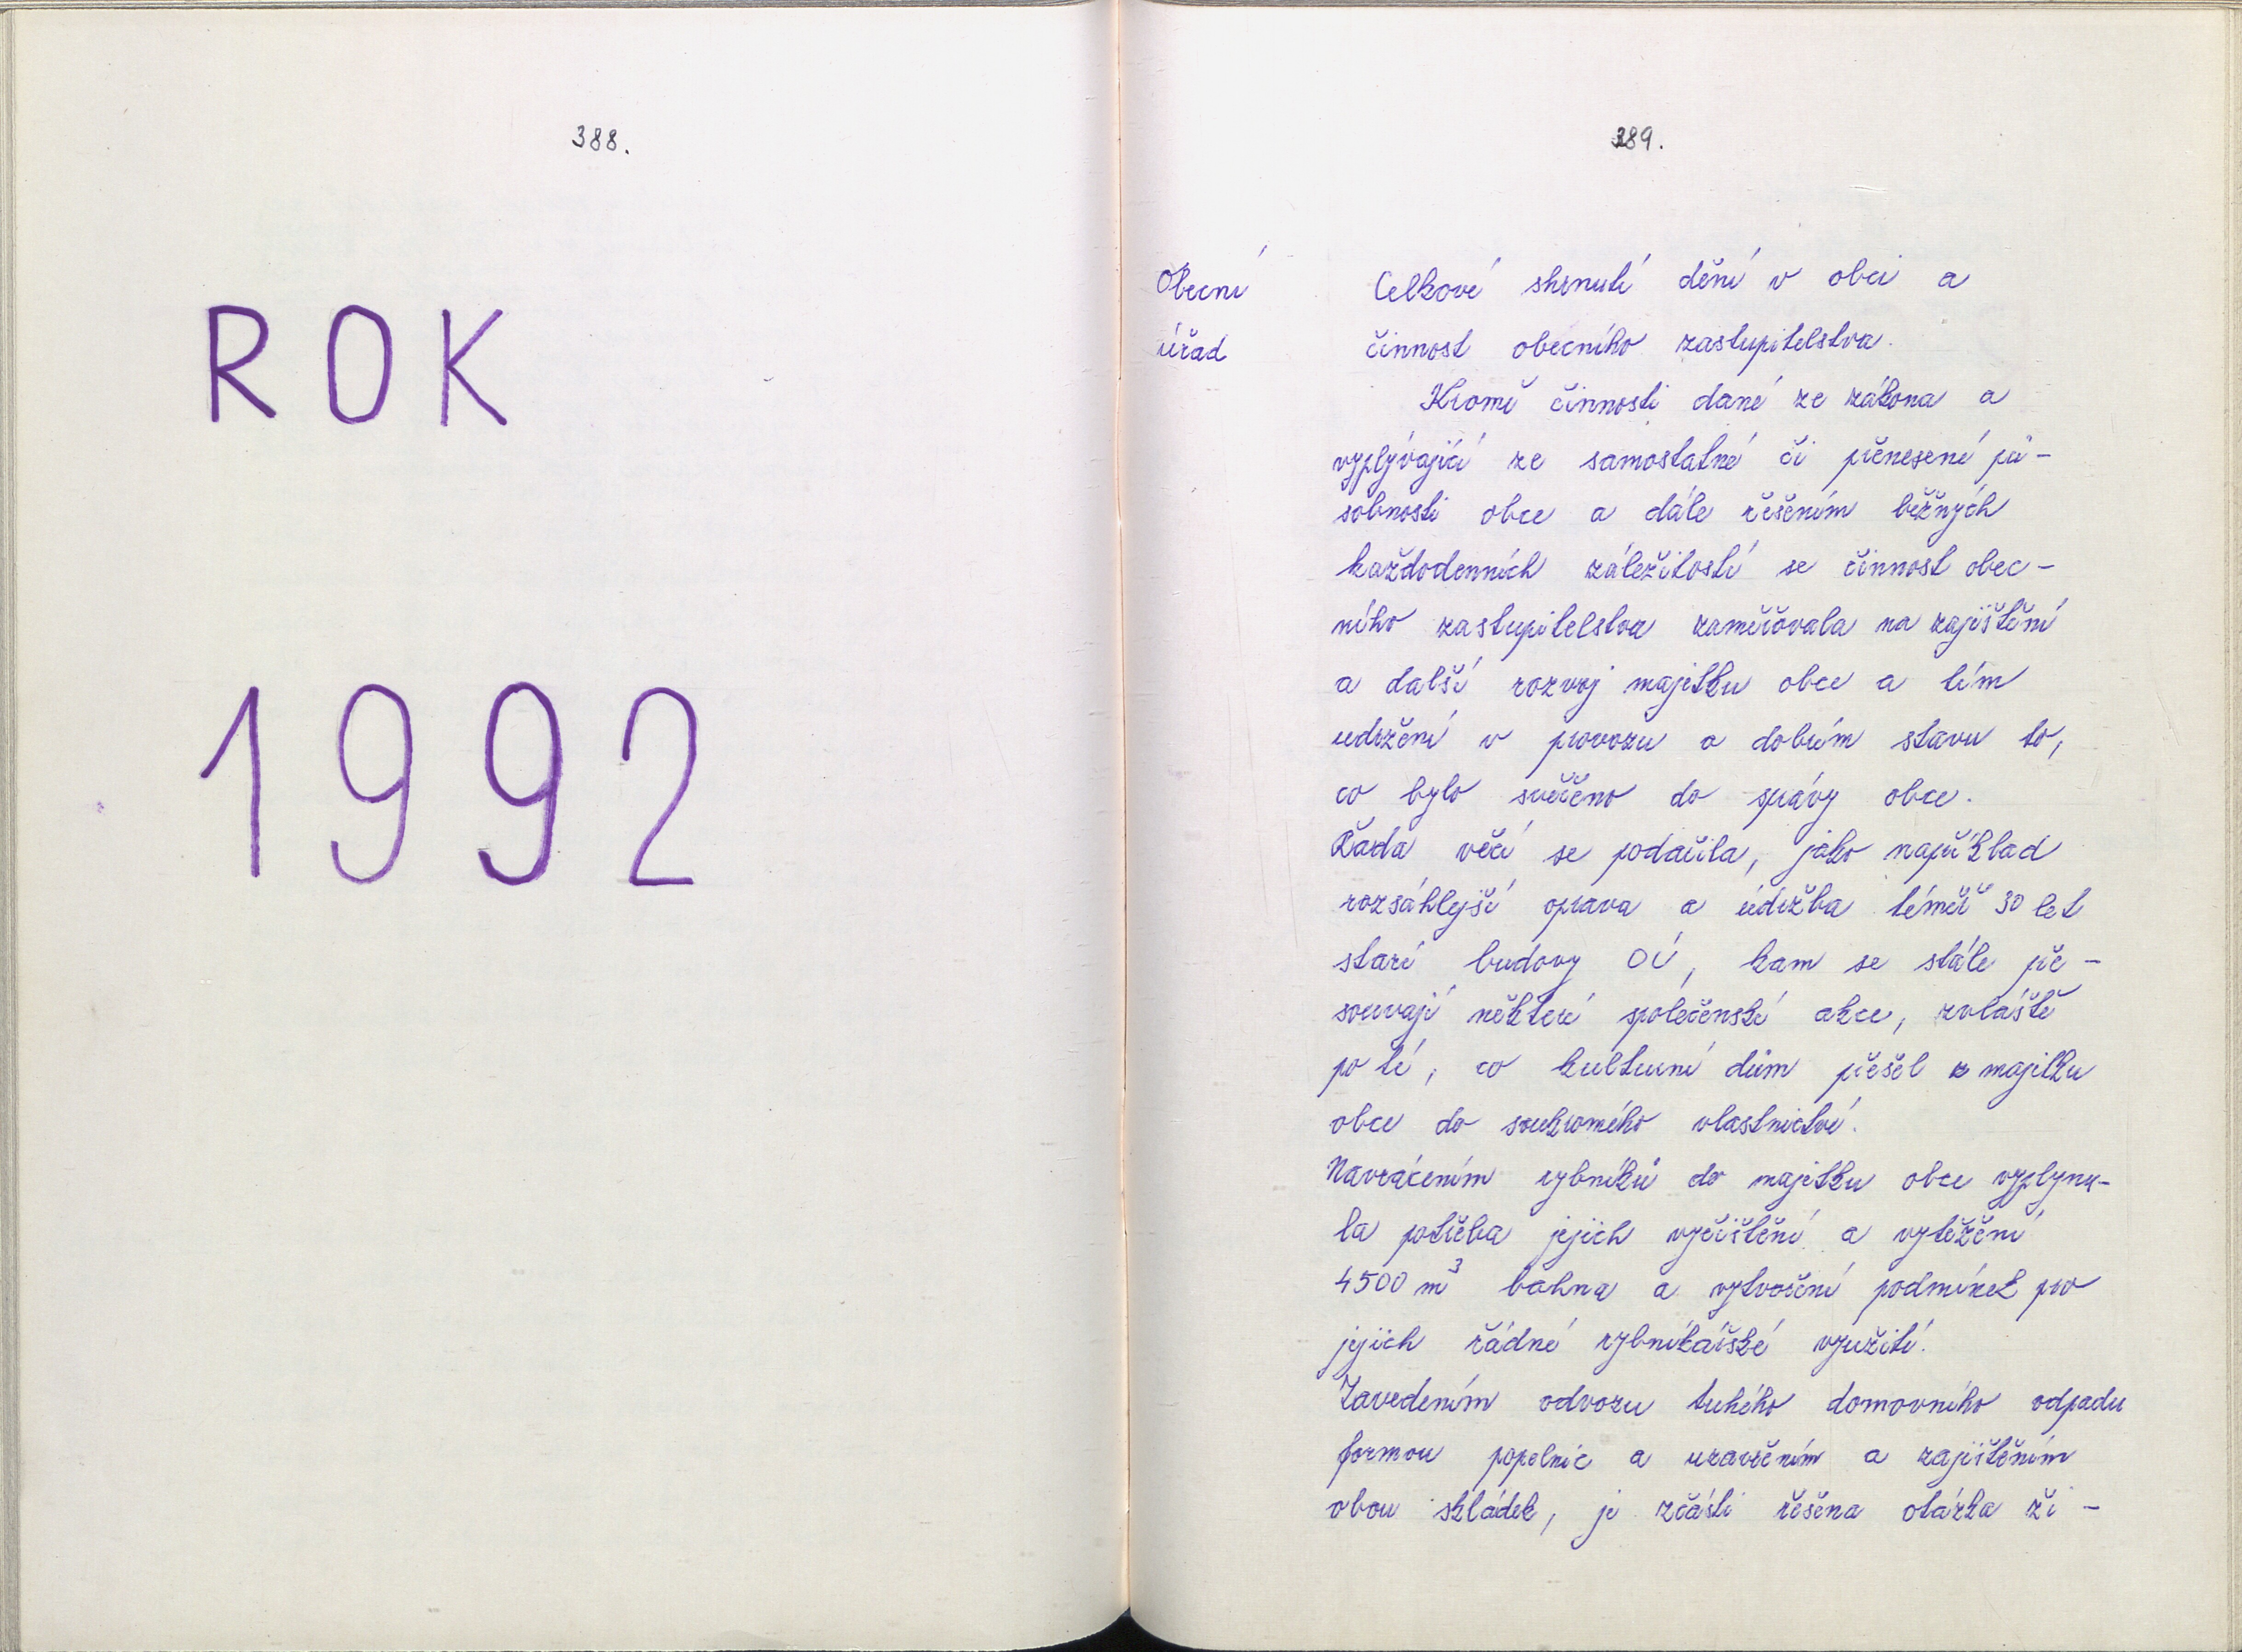 388.
ROK
1992
389.
Obecní
úřad
Celkové shrnutí dění v obci a
činnost obecního zastupitelstva.
Kromě činnosti dané ze zákona a
vyplývající ze samostatné či přenesené pů-
sobnosti obce a dále řešením běžných
každodenních záležitostí se činnost obec-
ního zastupitelstva zaměřovala na zajištění
a další rozvoj majetku obce a tím
udržení v provozu a dobrém stavu to,
co bylo svěřeno do správy obce.
Řada věcí se podařila, jako například
rozsáhlejší oprava a údržba téměř 30 let
staré budovy OÚ, kam se stále pře-
souvají některé společenské akce, zvláště
po té, co kulturní dům přešel z majetku
obce do soukromého vlastnictví.
Navrácením rybníků do majetku obce vyplynu-
la potřeba jejich vyčištění a vytěžení
4500 m³ bahna a vytvoření podmínek pro
jejich řádné rybníkářské využití.
Zavedením odvozu tuhého domovního odpadu
formou popelnic a uzavřením a zajištěním
obou skládek, je zčásti řešena otázka ži-